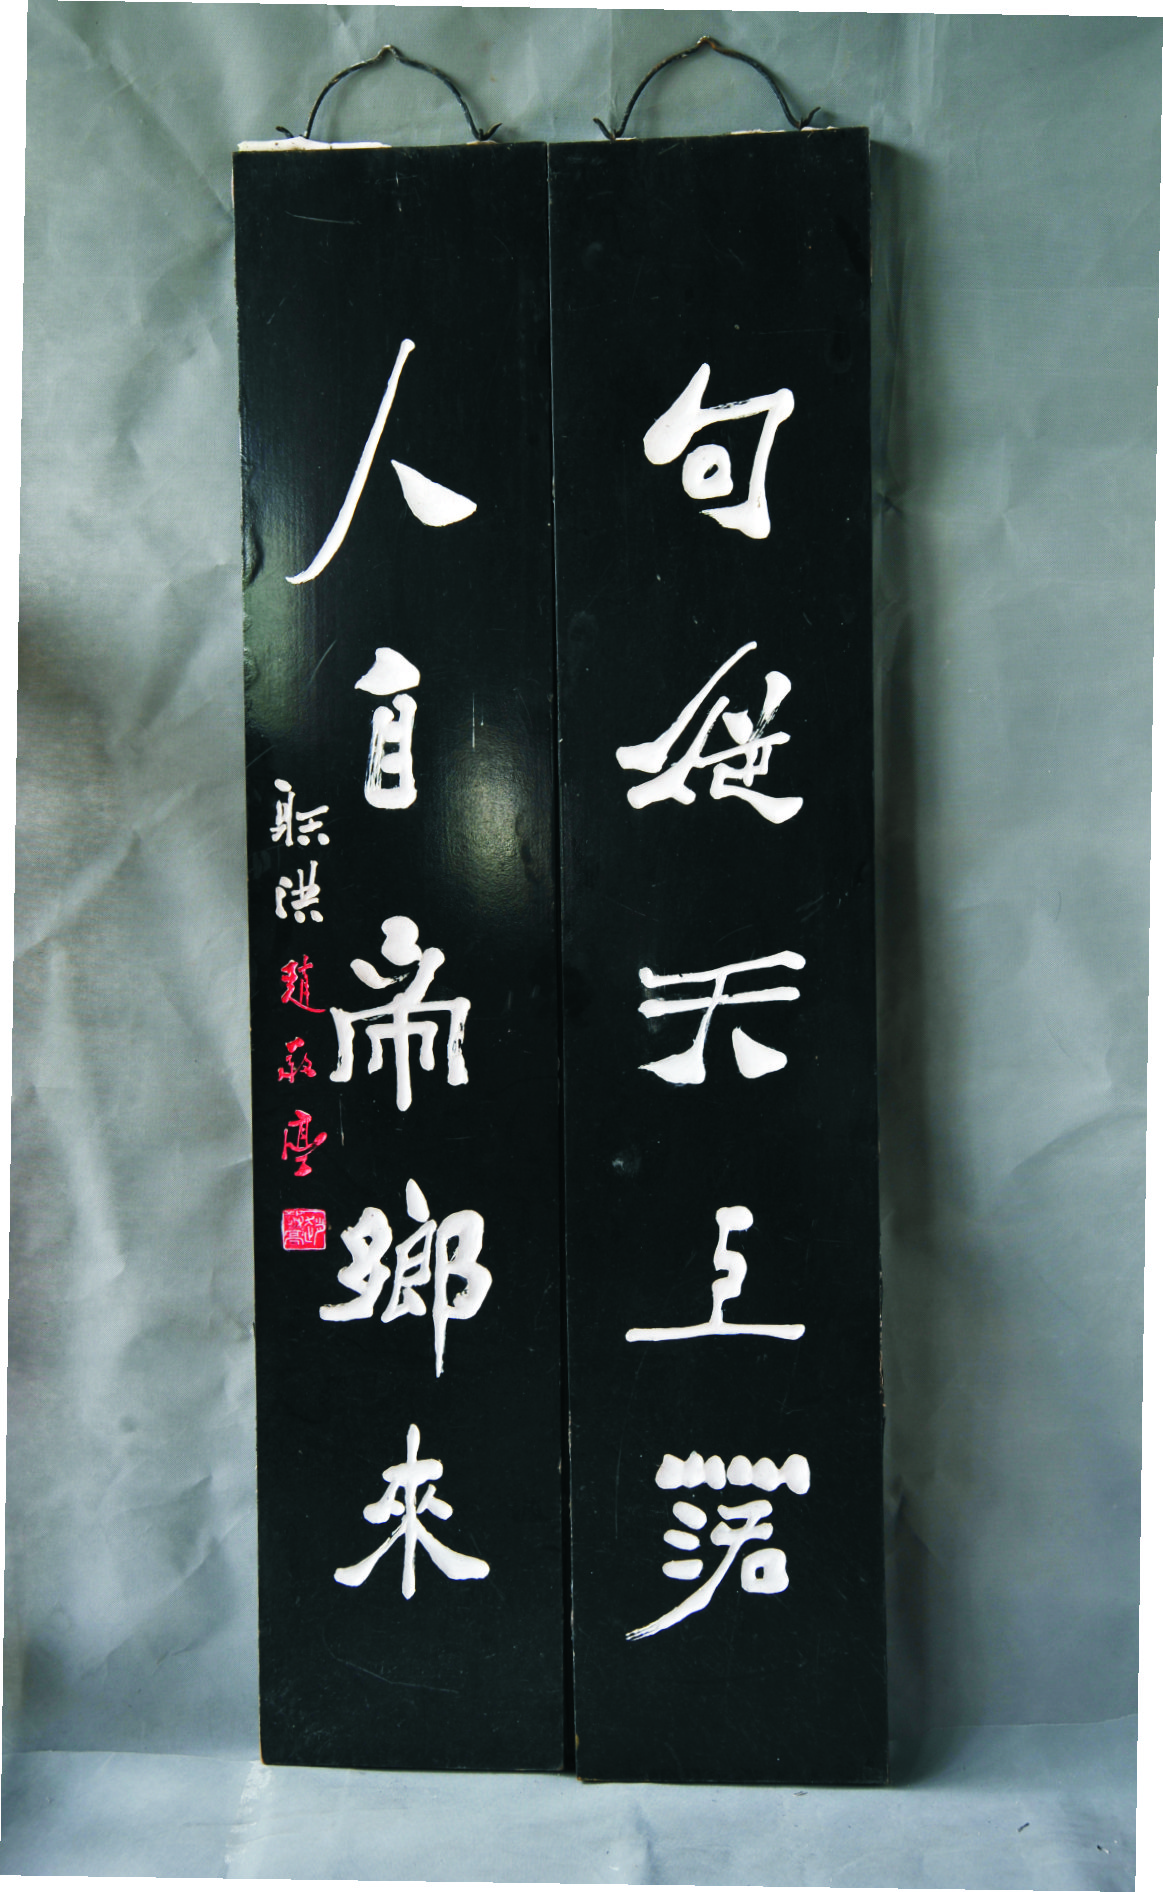 句從天上落
人自帝鄉來
联洪
趙敬亭